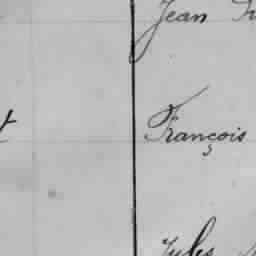 Jean
François
Jules